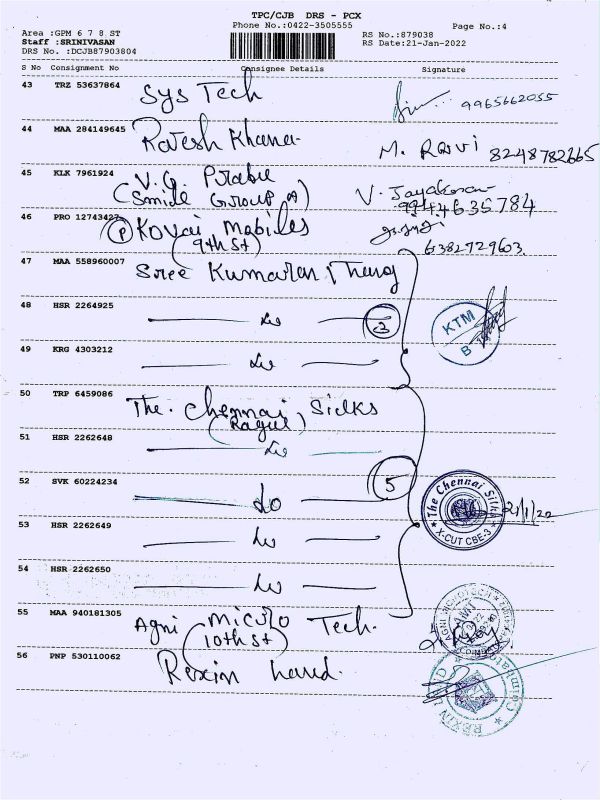 TPC/CJB DRS - PCX
Area :GPM 6 7 8 ST Phone No.:0422-3505555 Page No.:4
Staff :SRINIVASAN RS No.:879038
DRS No. :DCJB87903804 RS Date:21-Jan-2022
S No Consignment No Consignee Details Signature
43 TRZ 53637864 Sys Tech 9965662055
44 MAA 284149645 Ravesh Khana M. Ravi 8248782665
45 KLK 7961924 V.G. Prabu V. Jayakaran
(Smile Group) 9944635784
46 PRO 12743427 (P) Kovai mobiles
(9th St) 6382729603
47 MAA 558960007 Sree Kumaran Thang
48 HSR 2264925 3 KTM
B
49 KRG 4303212
50 TRP 6459086 The Chennai Silks
(Ragul)
51 HSR 2262648
52 SVK 60224234 5 The Chennai Silks
X-CUT CBE-3 21/1/22
53 HSR 2262649
54 HSR 2262650
55 MAA 940181305 Agni micro Tech.
(10th St)
56 PNP 530110062 Rexin Land
REXIN LAND Coimbatore